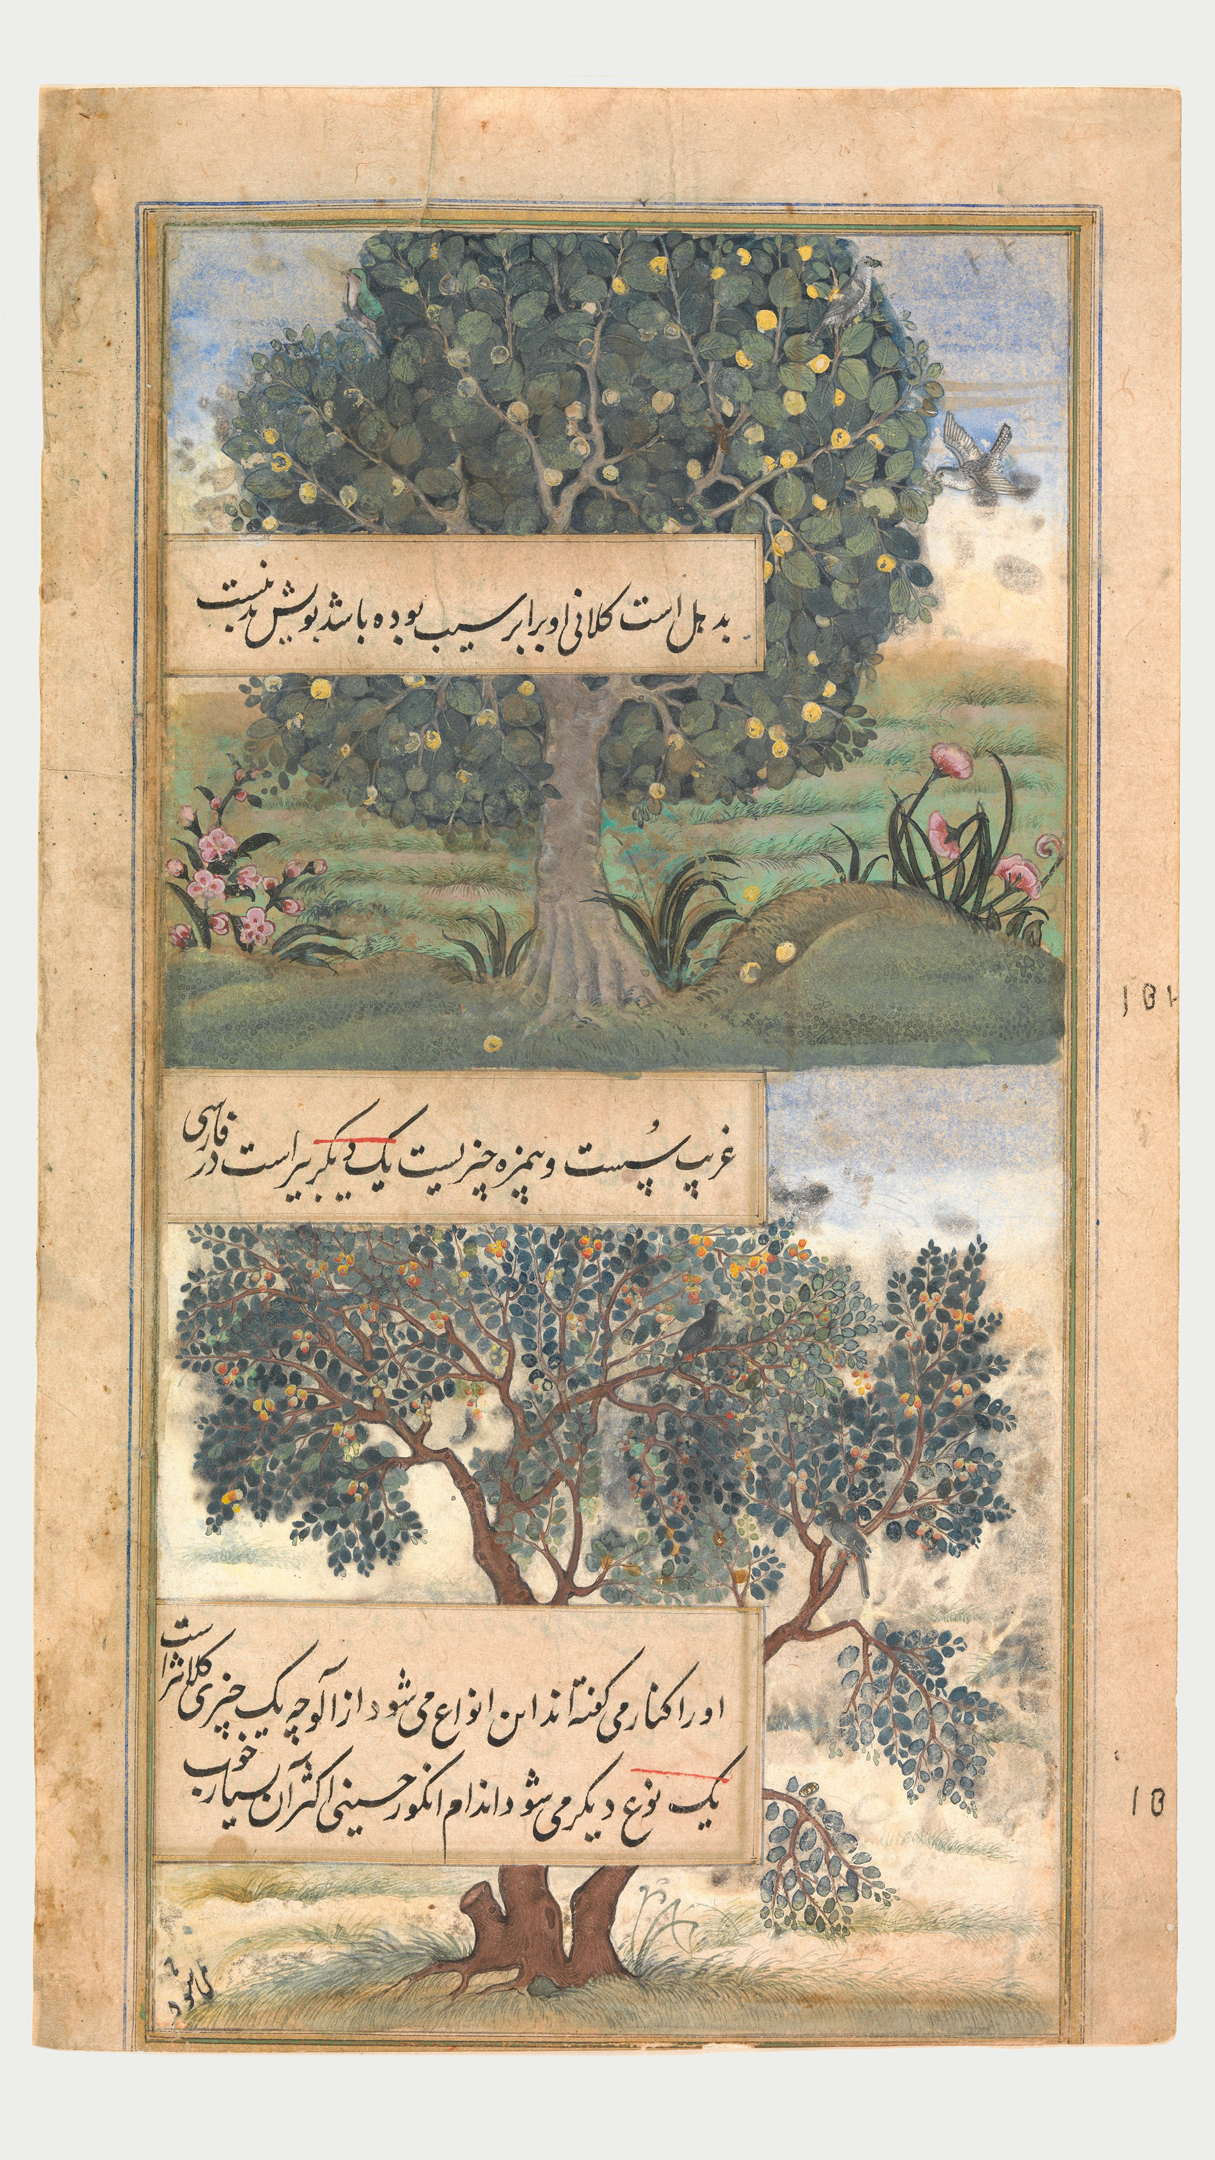 بدهل است کلانی او برابر سیب بوده باشد بویش بد نیست
غریب سُپست و بیمزه چیزیست یک دیگر بیر است در فارسی
او را کنار می گفته اند این انواع می شود از آلوچه یک چیزی کلانتر است
یک نوع دیگر می شود اندام انگور حسینی اکثر آن بسیار خوب
نمی شود